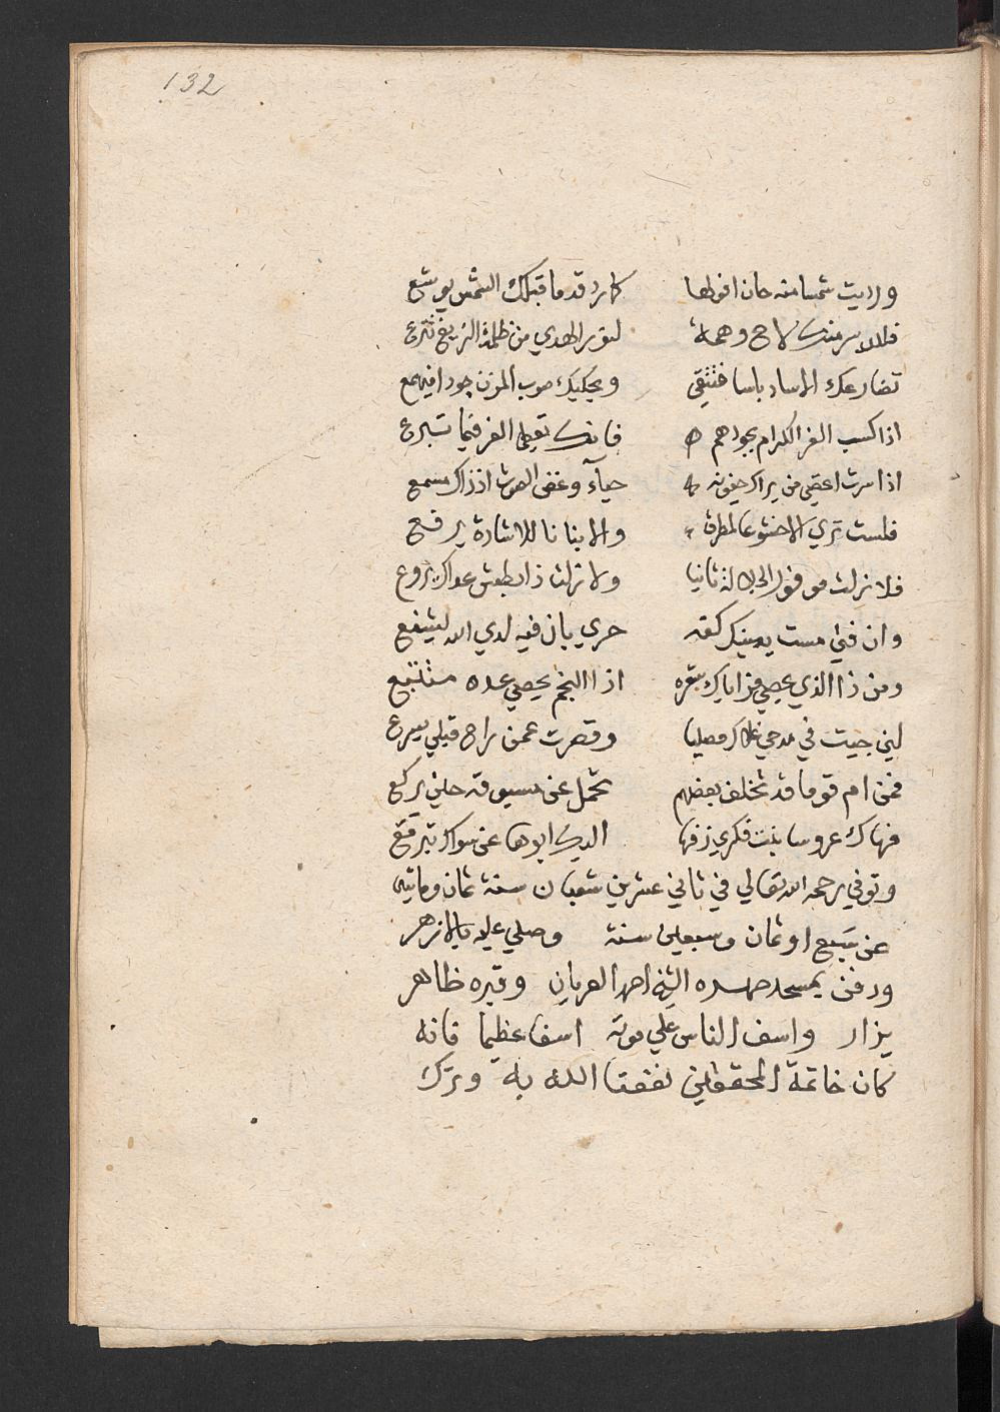 132
ورديت شمسا منه حان افولها كما رد قدما قبلك الشمس يوشع
فللاسر منك لاح وهمة لنور الهدي من ظلمة الزيغ تنزع
تضارعك الاساد باسا فتتقي ويحكيك صوب المزن جودا فيهمع
اذا كسب الفخر الكرام بجودهم فانك تعطي الفخر فيما تبرع
اذا سرت اغضي من يراك جفونه حياء وغض الصوت اذ ذاك مسمع
فلست تري الا خشوعا لمطرق ولا بنانا للاشارة يرفع
فلا زلت موفور الجلالة ثانيا ولا زلت ذا بطش عداك يروع
وان فتي مست يمينك كفه حري بان فيه لدي الله ليشفع
ومن ذا الذي يحصي مزاياك بشعره اذا النجم يحصي عده متتبع
لين جيت في مدحي علاك مصليا وقصرت عمن راح قبلي يسرع
فمن ام قوما قد تخلف بعضهم تحمل عن مسبوقه حين يركع
فهاك عروسا بنت فكري زفها اليك ابوها عن سواك تبرقع
وتوفي رحمه الله تعالي في ثاني عشرين شعبان سنة ثمان ومايتين
عن سبع او ثمان وسبعين سنة وصلي عليه بالازهر
ودفن بمسجد جده الشيخ احمد العريان وقبره ظاهر
يزار واسف الناس علي موته اسفا عظيما فانه
كان خاتمة المحققين نفعنا الله به وترك